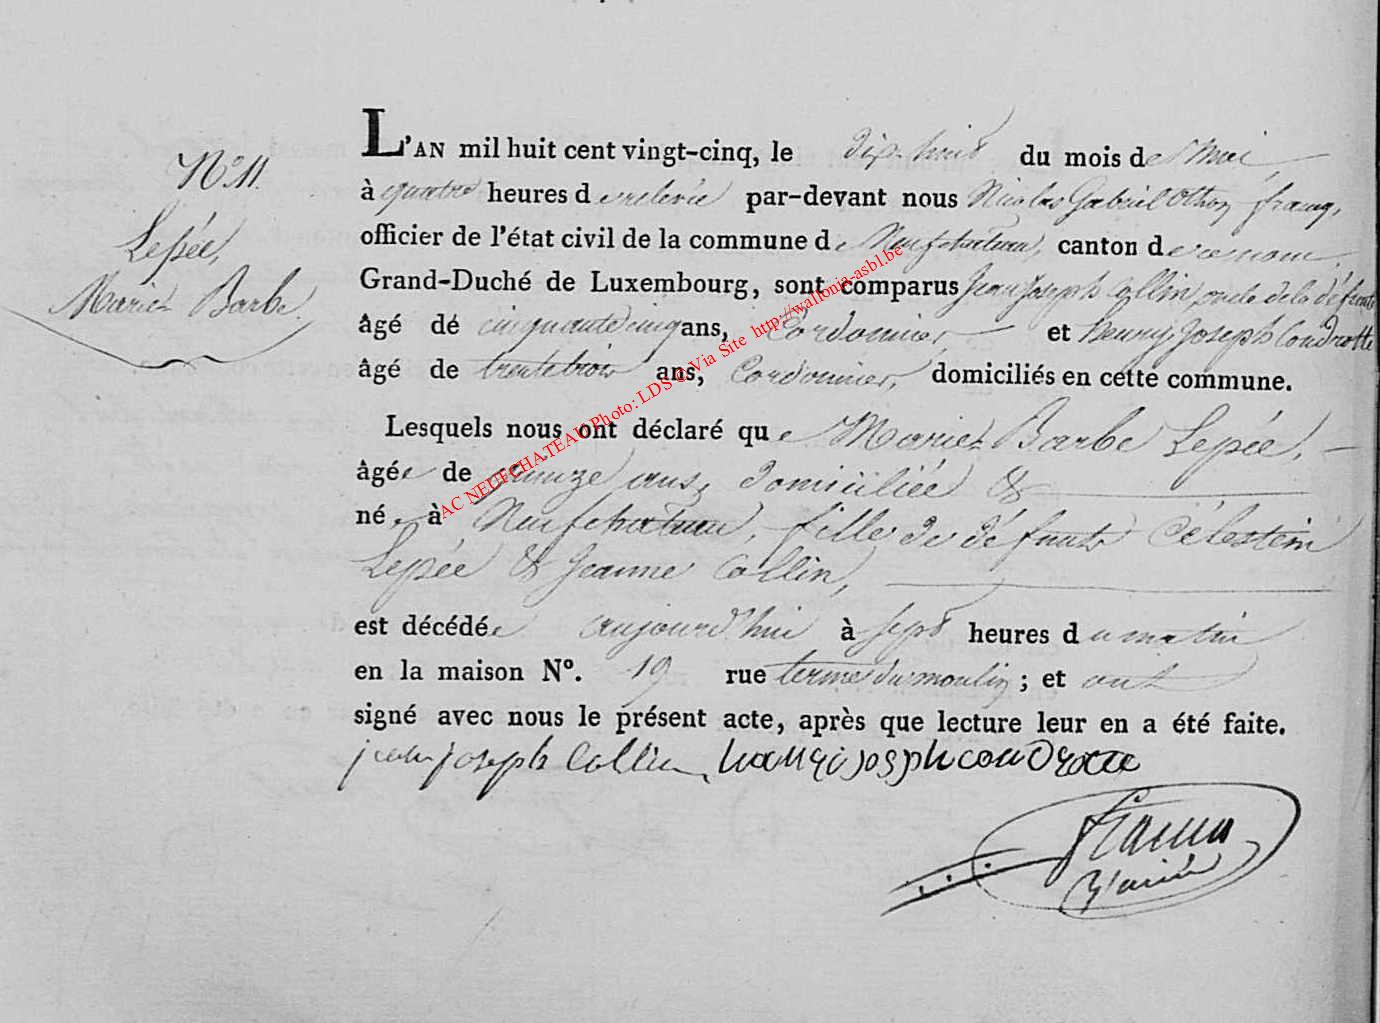 N.º 11.
Lepée,
Marie Barbe.
L'AN mil huit cent vingt-cinq, le dix huit du mois de Mai
à quatre heures de relevée par-devant nous Nicolas Gabriel Othon francq,
officier de l'état civil de la commune de Neufchateau, canton de ce nom
Grand-Duché de Luxembourg, sont comparus Jean Joseph Collin, oncle de la défunte
âgé dé cinquante cinq ans, Cordonnier, et henry Joseph Condrotte
âgé de trente trois ans, Cordonnier, domiciliés en cette commune.
Lesquels nous ont déclaré que Marie Barbe Lepée,
âgée de quinze ans, domiciliée &
née à Neufchateau, fille de défunts Célestin
Lepée & Jeanne Collin,
est décédée aujourd'hui à sept heures du matin
en la maison Nº. 19 rue terme du moulin ; et ont
signé avec nous le présent acte, après que lecture leur en a été faite.
jean joseph Collin, hanri josph condrotte
francq
AC NEUFCHATEAU Photo: LDS © Via Site http://wallonia-asbl.be